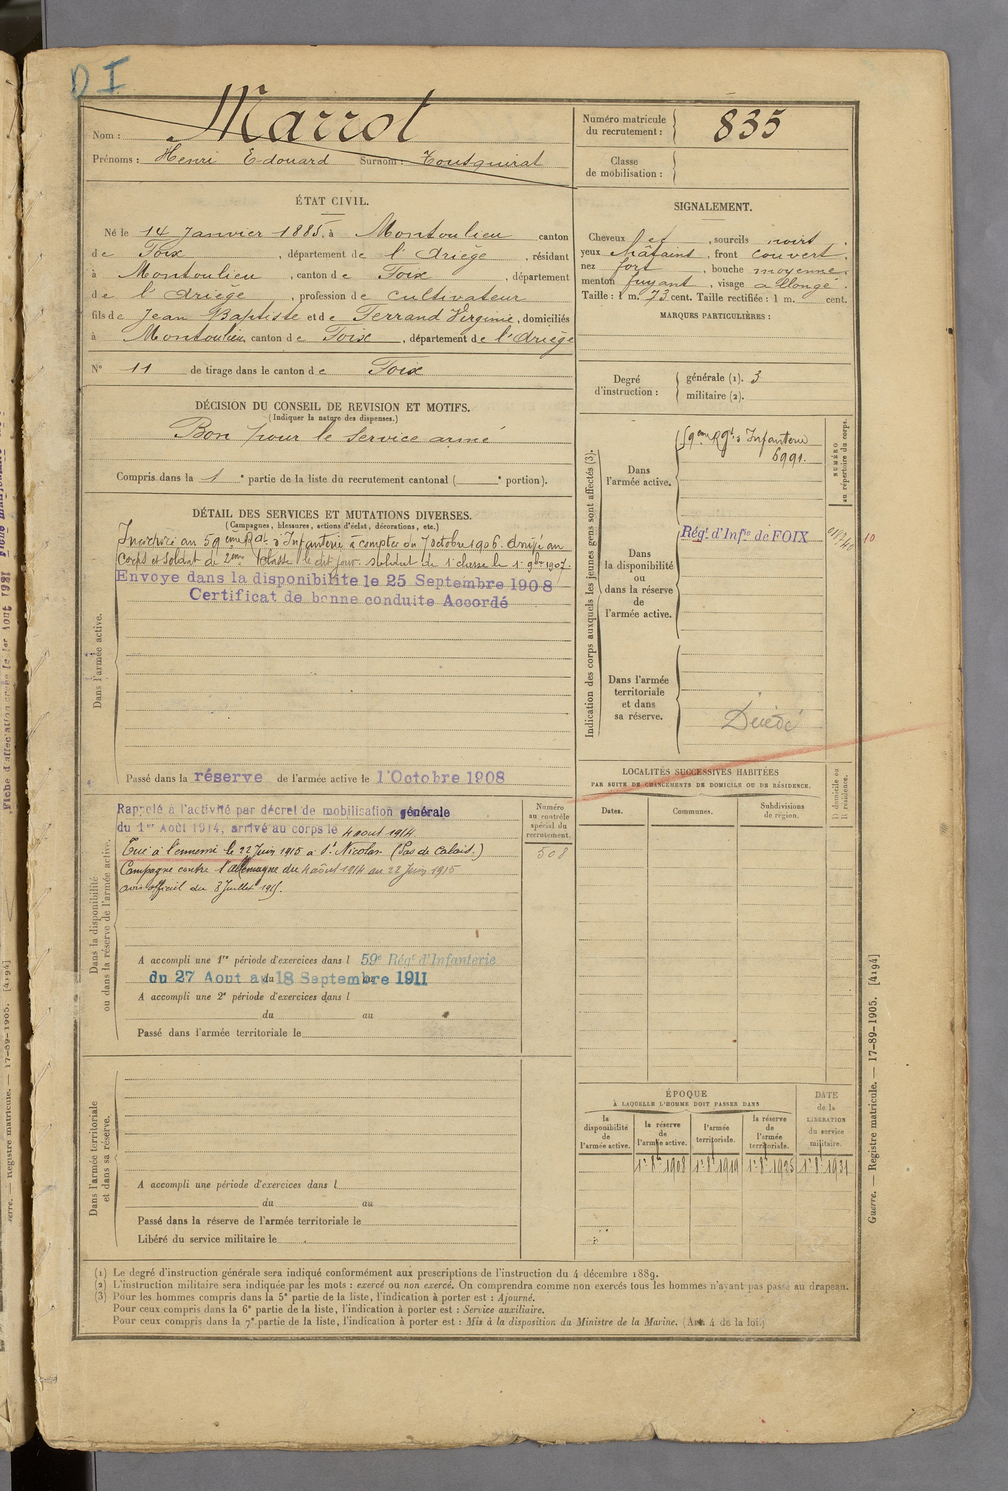 D I
Nom : Marrot
Prénoms : Henri Edouard Surnom : Tousquirat
Numéro matricule du recrutement : 835
Classe de mobilisation :
ÉTAT CIVIL.
Né le 14 Janvier 1885, à Montoulieu canton
de Foix, département de l'Ariège, résidant
à Montoulieu, canton de Foix, département
de l'Ariège, profession de cultivateur
fils de Jean Baptiste et de Serrand Virginie, domiciliés
à Montoulieu, canton de Foix, département de l'Ariège
N° 11 de tirage dans le canton de Foix
SIGNALEMENT.
Cheveux et, sourcils noirs.
yeux châtains, front couvert.
nez fort, bouche moyenne,
menton fuyant, visage allongé.
Taille : 1 m. 73 cent. Taille rectifiée : 1 m. cent.
MARQUES PARTICULIÈRES :
Degré d'instruction : générale (1). 3
militaire (2).
DÉCISION DU CONSEIL DE REVISION ET MOTIFS.
(Indiquer la nature des dispenses.)
Bon pour le service armé
Compris dans la 1e partie de la liste du recrutement cantonal ( e portion).
DÉTAIL DES SERVICES ET MUTATIONS DIVERSES.
(Campagnes, blessures, actions d'éclat, décorations, etc.)
Dans l'armée active.
Incorporé au 59eme Rgt d'Infanterie à compter du 7 octobre 1906. Arrivé au
Corps et soldat de 2eme classe le dit jour. soldat de 1e classe le 1er 9bre 1907.
Envoye dans la disponibilite le 25 Septembre 1908
Certificat de bonne conduite Accordé
Passé dans la réserve de l'armée active le 1 Octobre 1908
Indication des corps auxquels les jeunes gens sont affectés (3).
NUMÉRO au répertoire du corps.
Dans l'armée active.
59eme Rgt d'Infanterie
6991.
Dans la disponibilité ou dans la réserve de l'armée active.
Régt d'Infie de FOIX
10
Dans l'armée territoriale et dans sa réserve.
Décédé
Dans la disponibilité ou dans la réserve de l'armée active.
Rappelé à l'activité par décret de mobilisation générale
du 1er Août 1914, arrivé au corps le 4 aout 1914
Tué à l'ennemi le 22 Juin 1915 a St Nicolas (Pas de Calais.)
Campagne contre l'allemagne du 4 août 1914 au 22 Juin 1915
avis officiel du 8 Juillet 1915.
A accompli une 1re période d'exercices dans l 59e Régt d'Infanterie
du 27 Aout au 18 Septembre 1911
A accompli une 2e période d'exercices dans l
du au
Passé dans l'armée territoriale le
Numéro au contrôle spécial du recrutement.
508
LOCALITÉS SUCCESSIVES HABITÉES
PAR SUITE DE CHANGEMENTS DE DOMICILE OU DE RÉSIDENCE.
Dates. Communes. Subdivisions de région. D domicile ou R résidence.
Dans l'armée territoriale et dans sa réserve.
A accompli une période d'exercices dans l
du au
Passé dans la réserve de l'armée territoriale le
Libéré du service militaire le
ÉPOQUE
À LAQUELLE L'HOMME DOIT PASSER DANS
la disponibilité de l'armée active.
la réserve de l'armée active.
l'armée territoriale.
la réserve de l'armée territoriale.
DATE de la LIBÉRATION du service militaire.
1r 8bre 1908 1r 8bre 1919 1r 8bre 1925 1r 8bre 1931
(1) Le degré d'instruction générale sera indiqué conformément aux prescriptions de l'instruction du 4 décembre 1889.
(2) L'instruction militaire sera indiquée par les mots : exercé ou non exercé. On comprendra comme non exercés tous les hommes n'ayant pas passé au drapeau.
(3) Pour les hommes compris dans la 5e partie de la liste, l'indication à porter est : Ajourné.
Pour ceux compris dans la 6e partie de la liste, l'indication à porter est : Service auxiliaire.
Pour ceux compris dans la 7e partie de la liste, l'indication à porter est : Mis à la disposition du Ministre de la Marine. (Art. 4 de la loi.)
Guerre. — Registre matricule. — 17-89-1905. [4194]